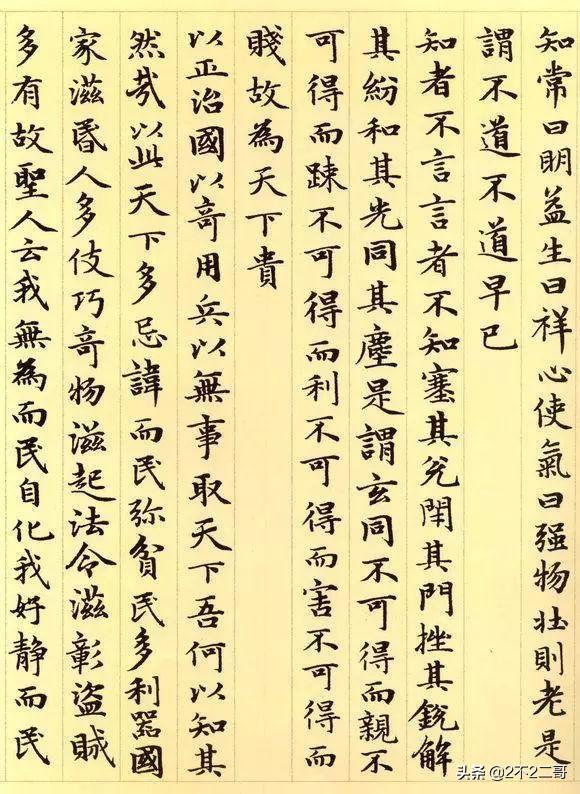 知常曰明益生曰祥心使氣曰强物壯則老是
謂不道不道早已
知者不言言者不知塞其兌閈其門挫其銳解
其紛和其光同其塵是謂玄同不可得而親不
可得而踈不可得而利不可得而害不可得而
賤故為天下貴
以正治國以竒用兵以無事取天下吾何以知其
然㢤以此天下多忌諱而民弥貧民多利器國
家滋昬人多伎巧竒物滋起法令滋彰盜賊
多有故聖人云我無為而民自化我好静而民
头条 @2不2二哥